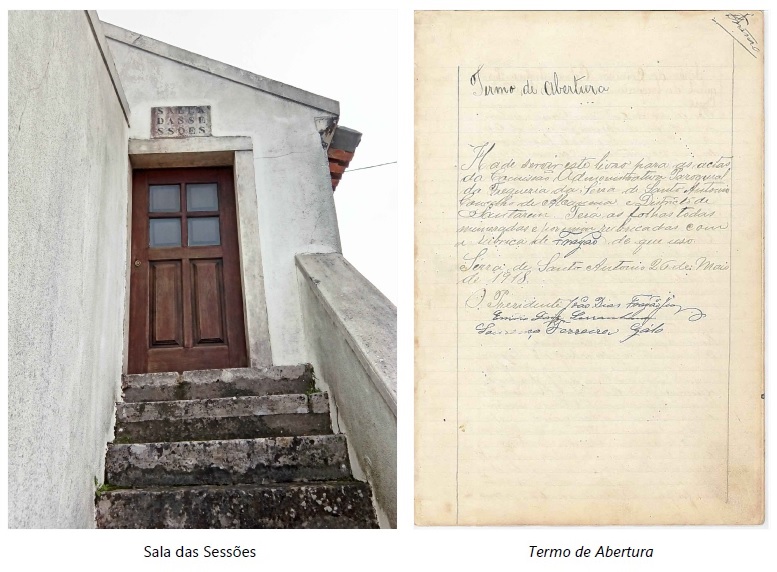 SALLA
DAS SE
SSÕES
Sala das Sessões
Termo de Abertura
Ha de servir este livro para as actas
da Comissão Administrativa Paroquial
da Freguesia da Serra de Santo Antonio
Concelho de Alcanena e Districto de
Santarem. Terá as folhas todas
numeradas e por mim rubricadas com
a rubrica de Forajão de que uso
Serra de Santo Antonio 26 de Maio
de 1918.
O Presidente João Dias
Ferreira Gálo
Termo de Abertura